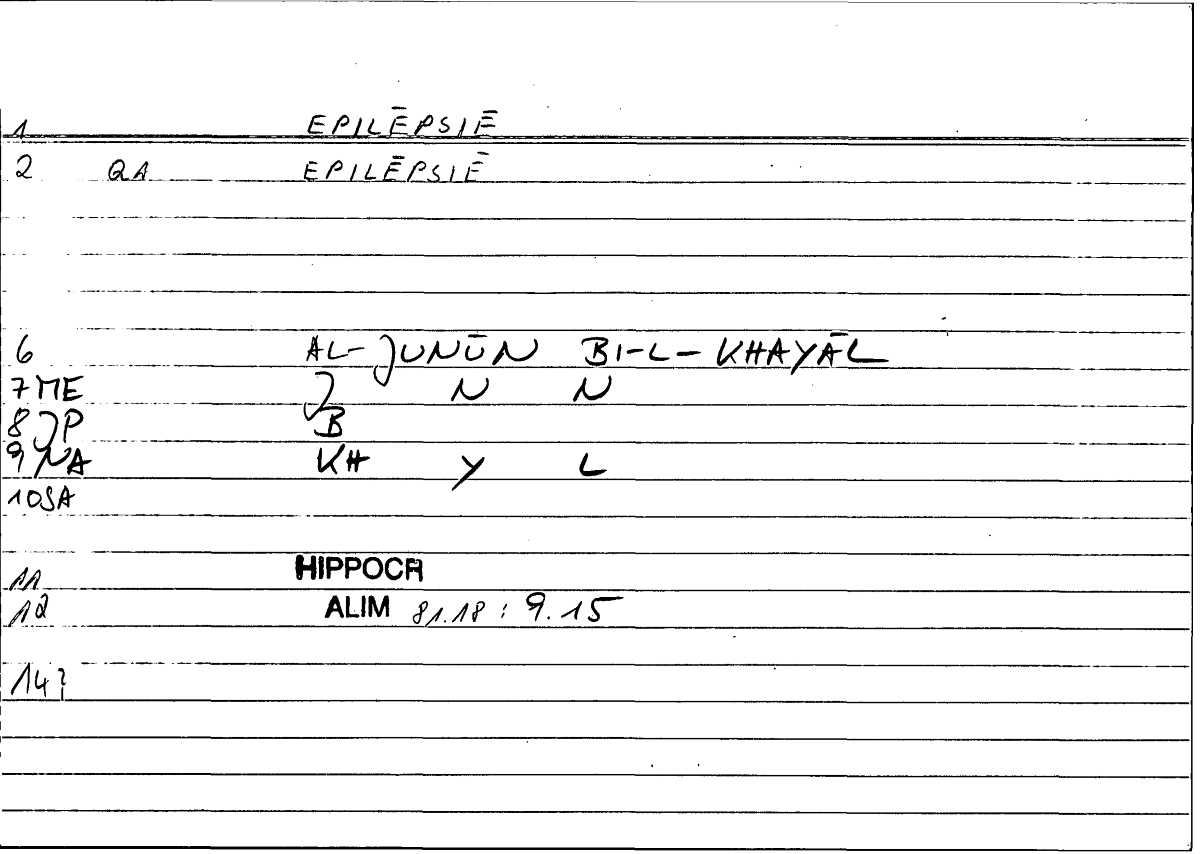 1 EPILĒPSIĒ
2 QA EPILĒPSIĒ
6 AL-JUNŪN BI-L-KHAYĀL
7 ME J N N
8 JP B
9 NA KH Y L
10 SA
11 HIPPOCR
12 ALIM 81.18 : 9.15
14?